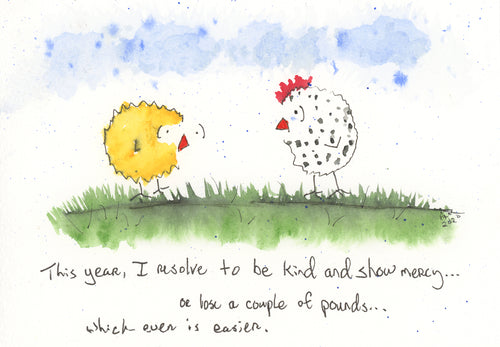 This year, I resolve to be kind and show mercy...
or lose a couple of pounds...
which ever is easier.